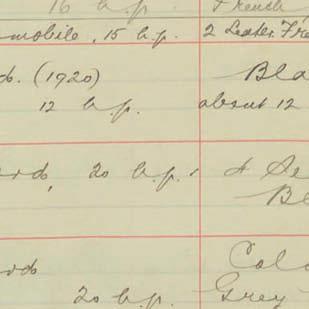 16 h.p. French
mobile, 15 h.p. 2 Seater. Fre
d. (1920) Bla
12 h.p. about 12
ord, 20 h.p. 4 Se
Bl
ord Colo
20 h.p. Grey